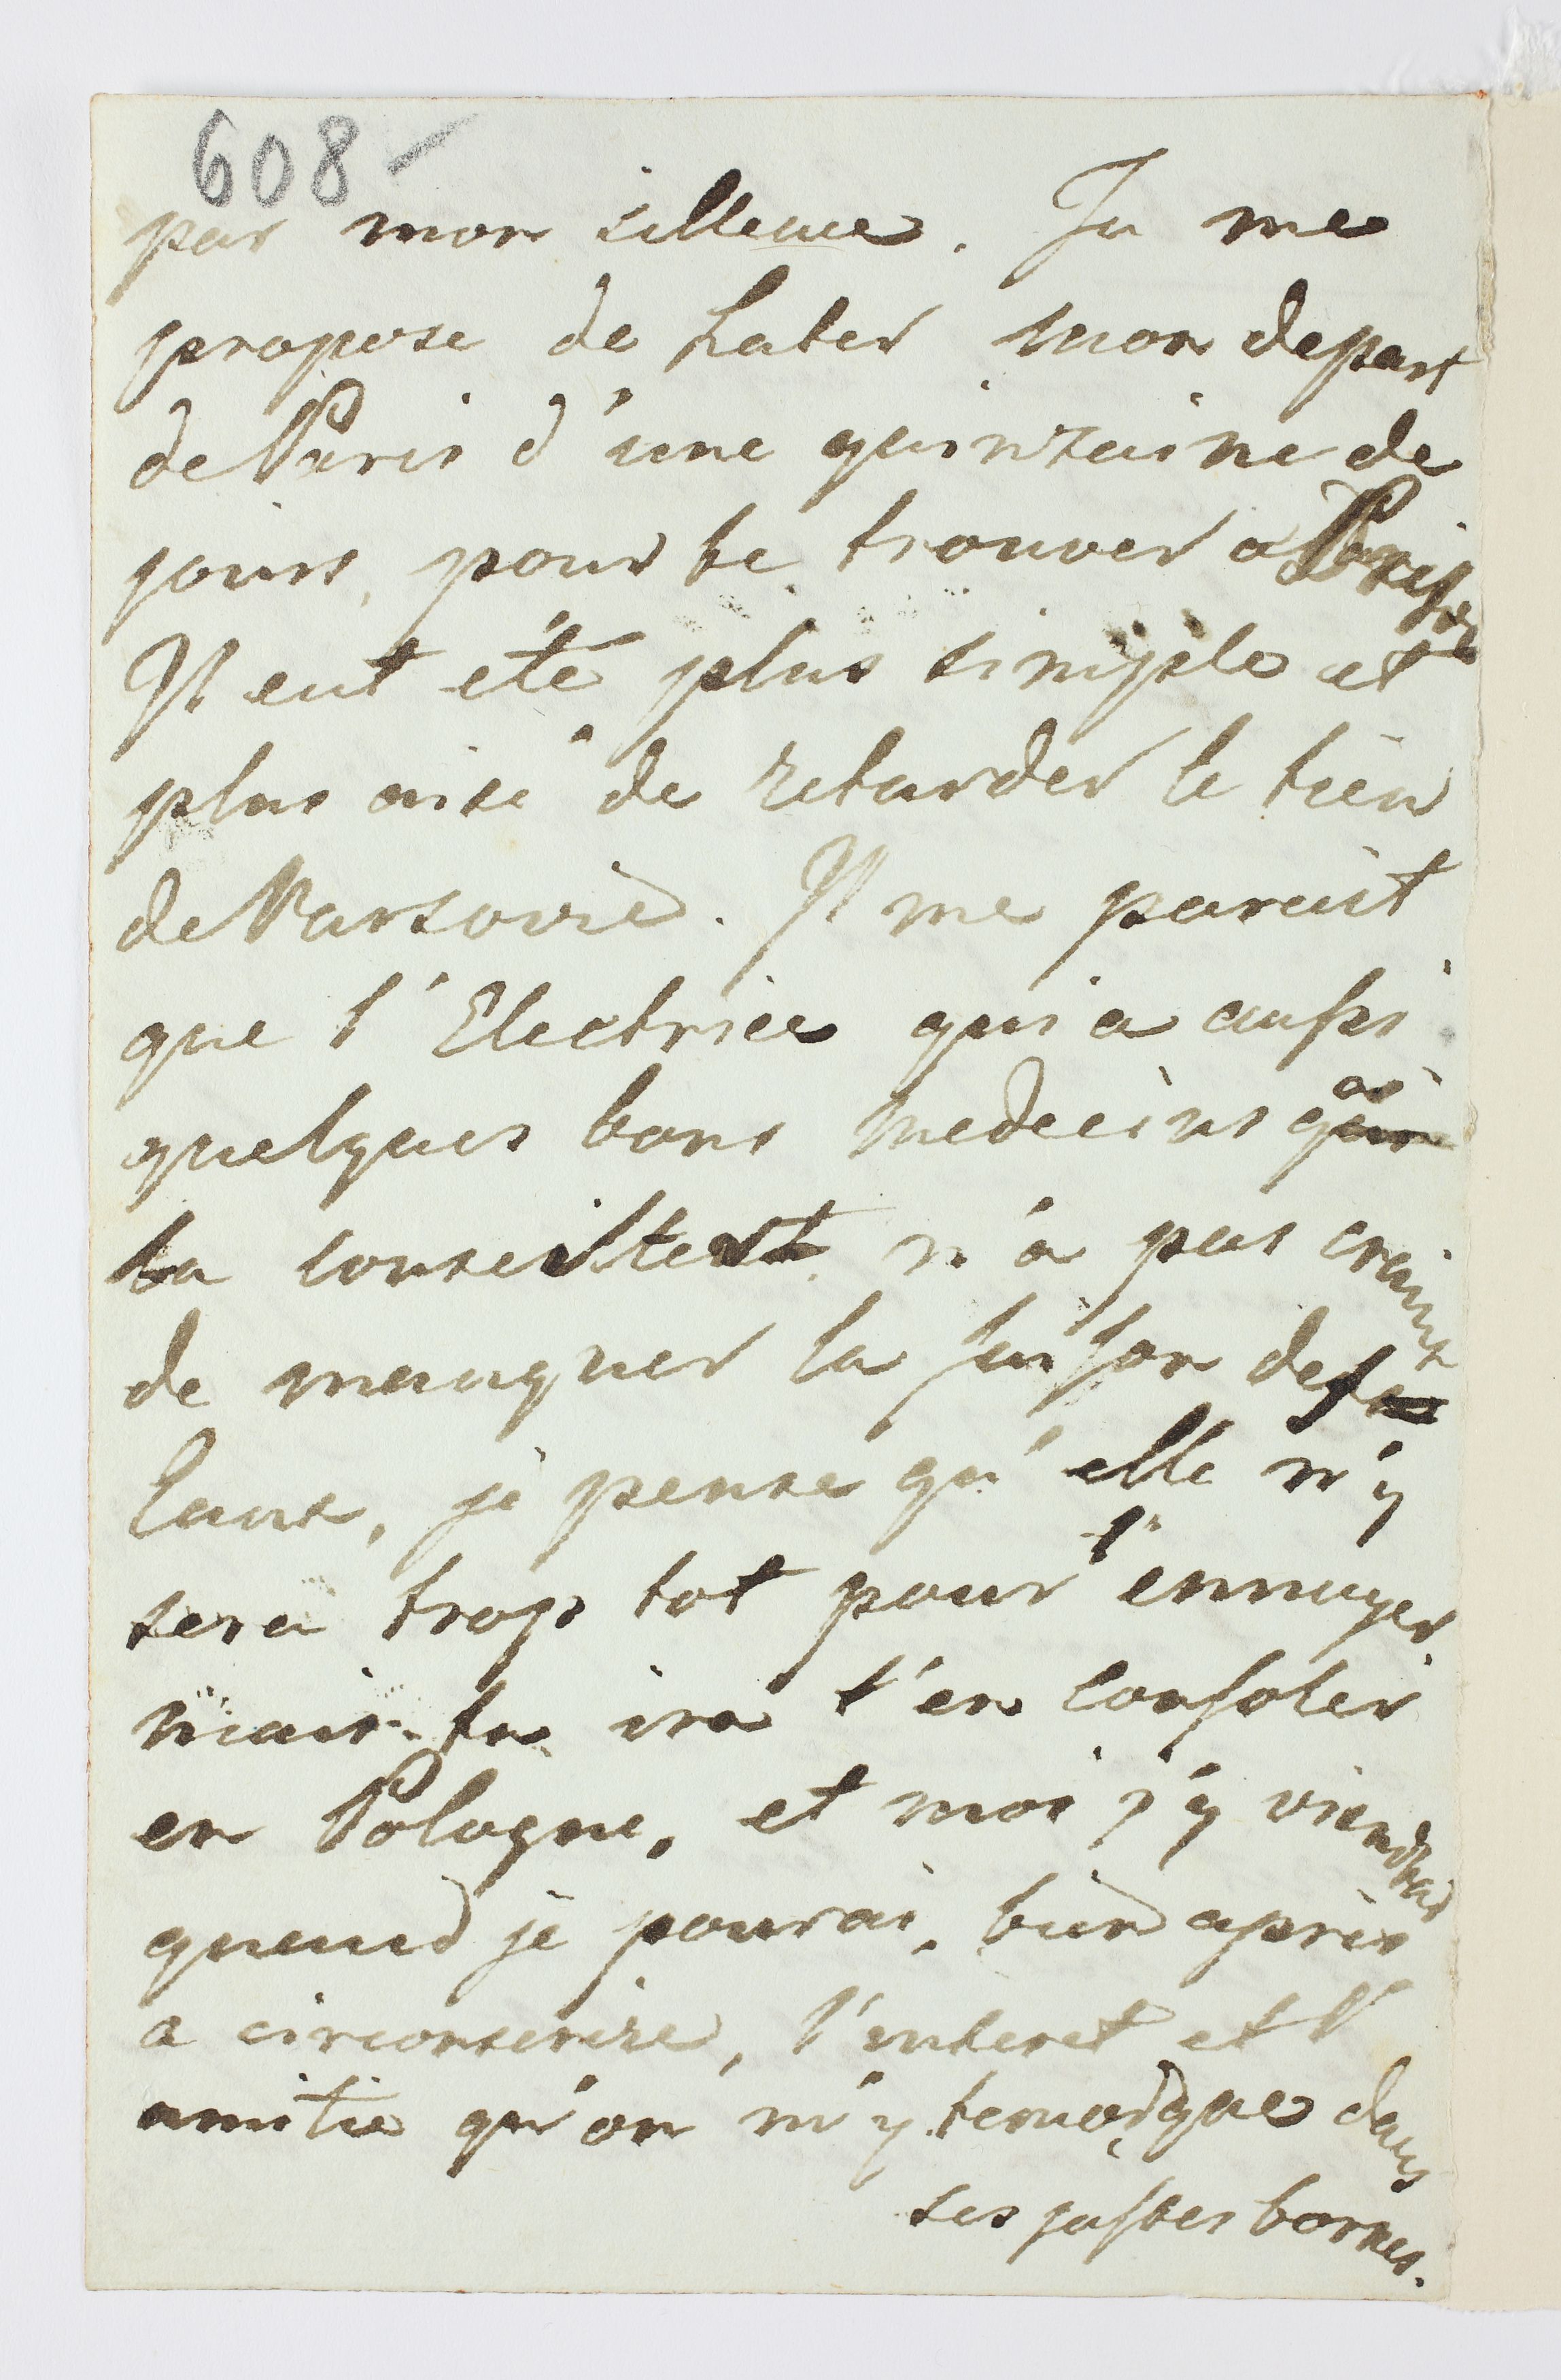 608 -
par mon sillence. Tu me
propose de hater mon depart
de Paris d'une quinzaine de
jours, pour te trouver a
Il eut eté plus simple et
plus aisé de retarder le tien
de Varsovie. Il me parait
que l'Electrice qui a aussi
quelques bons medecins
la conseiller n'a pas craint
de manquer la saison de
eaux, je pense qu'elle n'y
sera trop tot pour l'ennuyer
mais tu ira t'en consoler
en Pologne, et moi j'y viendrai
quand je pourai, bien apris
a circonscrire, l'interet et l'
amitie qu'on m'y temoigne dans
ses justes bornes.